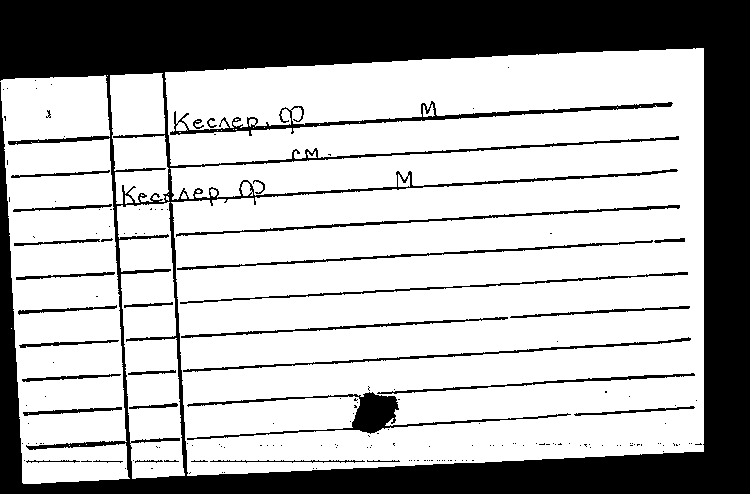 Кеслер, Ф М
см.
Кеслер, Ф М